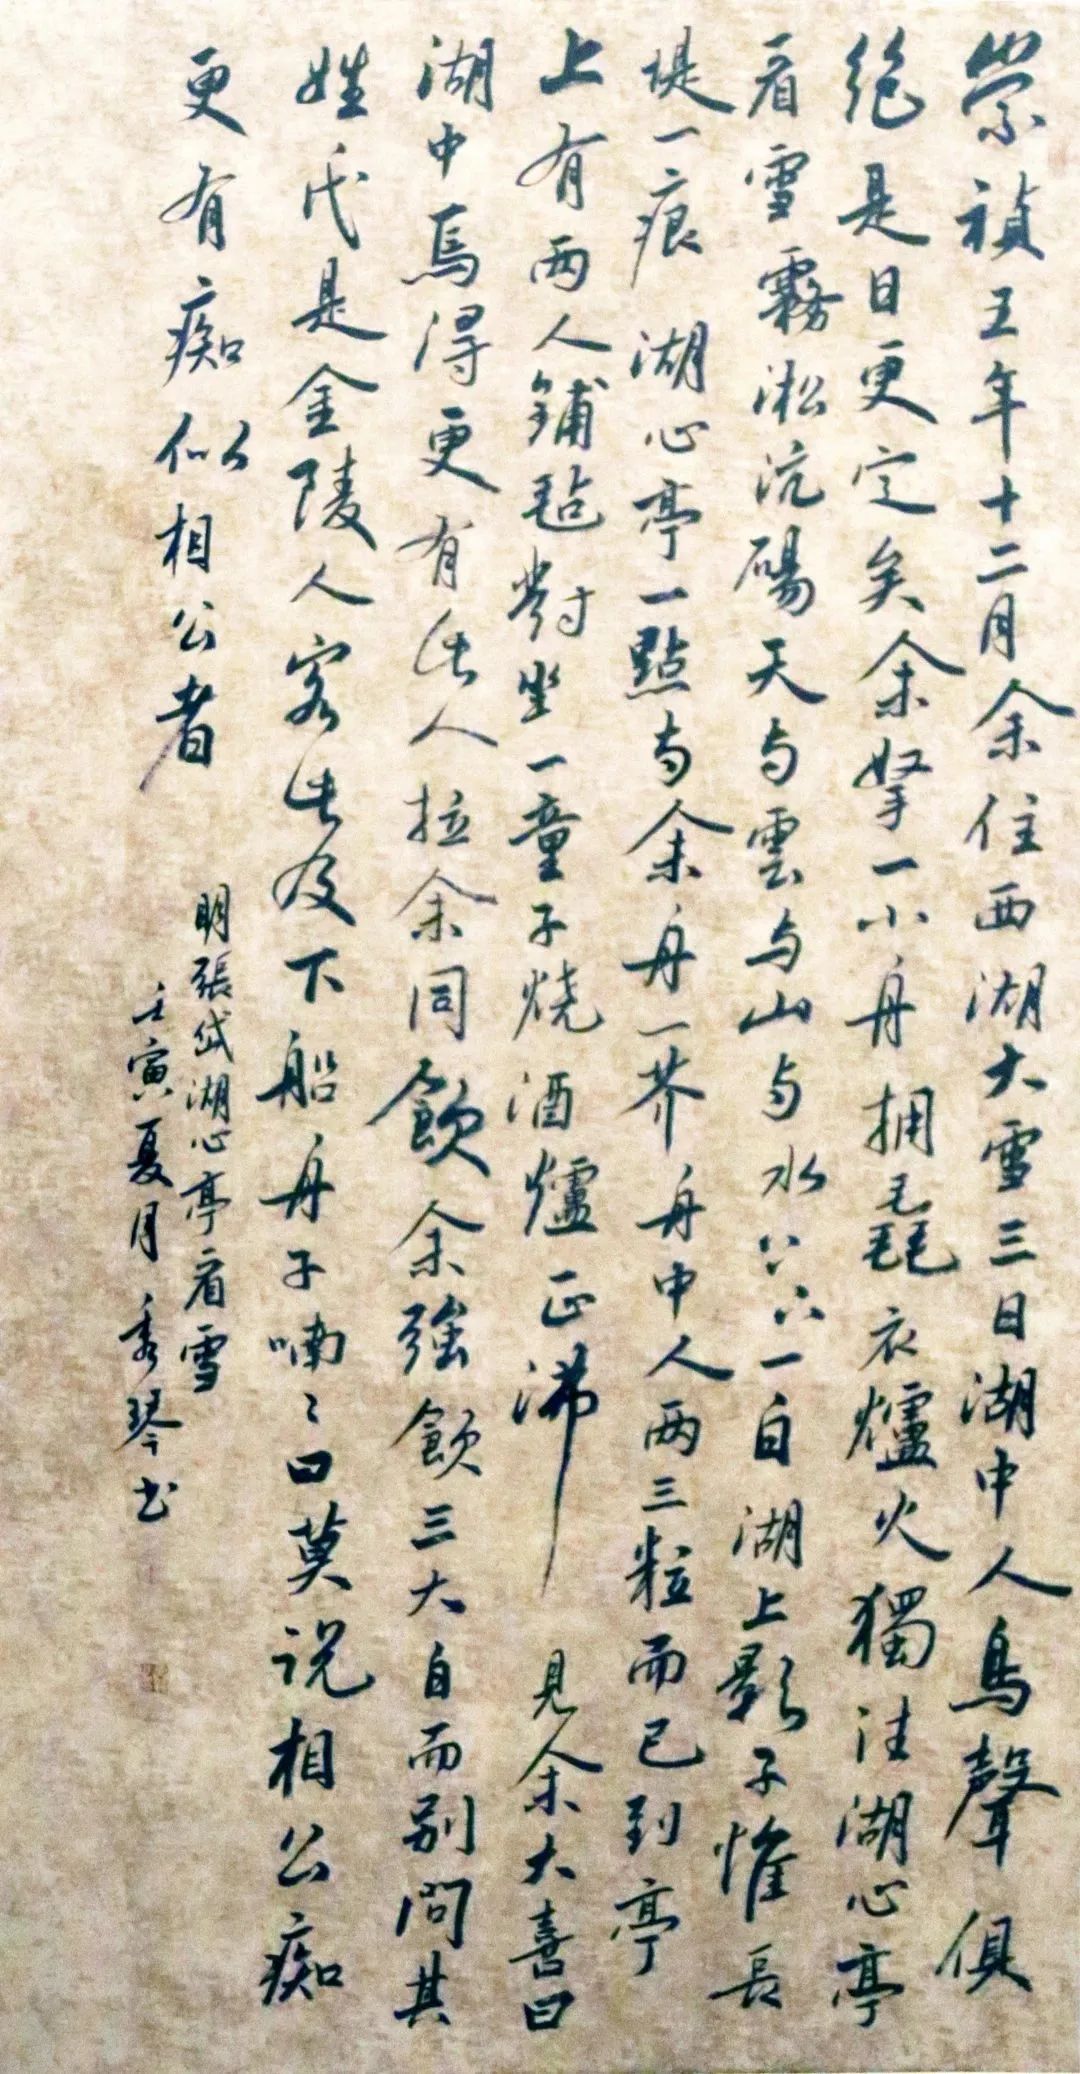 崇禎五年十二月余住西湖大雪三日湖中人鳥聲俱
絶是日更定矣余拏一小舟拥毳衣爐火獨往湖心亭
看雪霧淞沆碭天与雲与山与水上下一白湖上影子惟長
堤一痕湖心亭一點与余舟一芥舟中人两三粒而已到亭
上有两人鋪毡對坐一童子燒酒爐正沸見余大喜曰
湖中焉得更有此人拉余同飲余強飲三大白而别問其
姓氏是金陵人客此及下船舟子喃〻曰莫说相公痴
更有痴似相公者
明張岱湖心亭看雪
壬寅夏月秀琴书